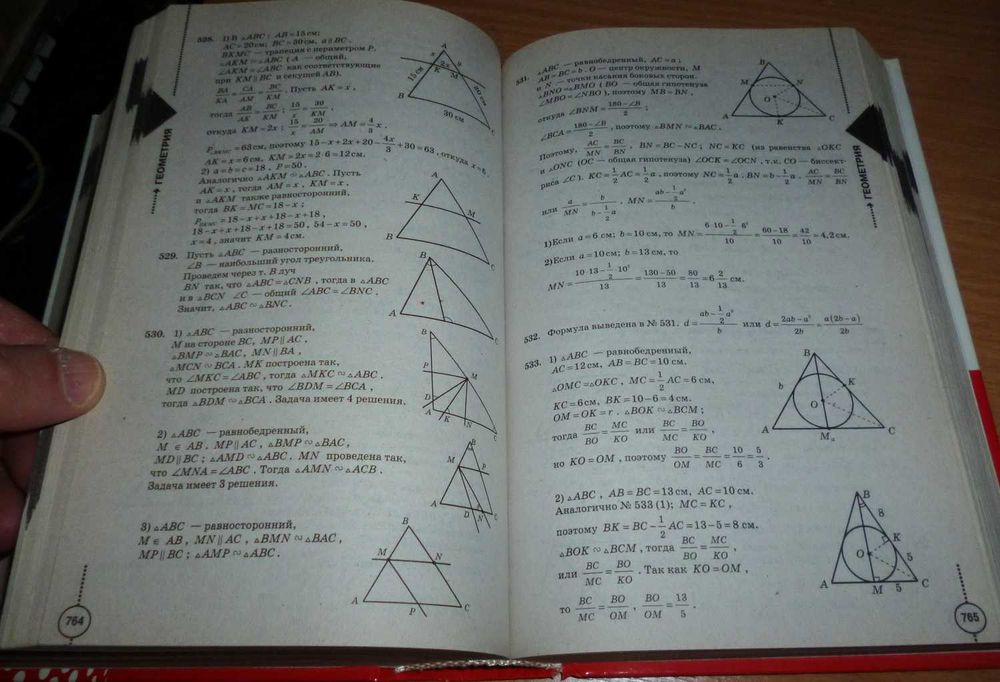 528. 1) В △ABC: AB=15см;
AC=20см; BC=30см, a∥BC.
BKMC — трапеция с периметром P,
△AKM∽△ABC (A — общий,
∠AKM=∠ABC как соответствующие
при KM∥BC и секущей AB).
BA/KA=CA/AM=BC/KM. Пусть AK=x,
тогда AB/AK=BC/KM; 15/x=30/KM,
откуда KM=2x; 15/x=20/AM ⇒ AM=4/3 x.
P =63см, поэтому 15−x+2x+20−4x/3+30=63, откуда x=6.
AK=x=6см, KM=2x=2·6=12см.
2) a=b=c=18, P=50.
Аналогично △AKM∽△ABC. Пусть
AK=x, тогда AM=x, KM=x,
и △AKM также равносторонний,
тогда BK=MC=18−x;
P =18−x+x+18−x+18,
18−x+x+18−x+18=50, 54−x=50,
x=4, значит KM=4см.
529. Пусть △ABC — разносторонний,
∠B — наибольший угол треугольника.
Проведем через т. B луч
BN так, что △ABC=△CNB, тогда в △ABC
и в △BCN ∠C — общий ∠ABC=∠BNC.
Значит, △ABC∽△BNC.
530. 1) △ABC — разносторонний,
M на стороне BC, MP∥AC,
△BMP∽△BAC, MN∥BA,
△MCN∽BCA. MK построена так,
что ∠MKC=∠ABC, тогда △MKC∽△ABC.
MD построена так, что ∠BDM=∠BCA,
тогда △BDM∽△BCA. Задача имеет 4 решения.
2) △ABC — равнобедренный,
M∈AB. MP∥AC, △BMP∽△BAC,
MD∥BC; △AMD∽△ABC. MN проведена так,
что ∠MNA=∠ABC. Тогда △AMN∽△ACB.
Задача имеет 3 решения.
3) △ABC — равносторонний,
M∈AB, MN∥AC, △BMN∽△BAC,
MP∥BC; △AMP∽△ABC.
ГЕОМЕТРИЯ
764
A
x
y
2x
K
M
15 см
20 см
B
30 см
C
A
K
M
B
C
B
A
C
B
P
M
D
A
K
N
C
B
M
P
A
D
N
C
B
M
N
A
P
C
531. △ABC — равнобедренный, AC=a;
AB=BC=b. O — центр окружности, M
и N — точки касания боковых сторон.
△BNO=△BMO (BO — общая гипотенуза
∠MBO=∠NBO), поэтому MB=BN,
откуда ∠BNM=(180−∠B)/2;
∠BCA=(180−∠B)/2, поэтому △BMN∽△BAC.
Поэтому, AC/MN=BC/BN, BN=BC−NC; NC=KC (из равенства △OKC
и △ONC (OC — общая гипотенуза) ∠OCK=∠OCN, т.к. CO — биссект-
риса ∠C). KC=1/2 AC=1/2 a, поэтому NC=1/2 a. BN=b−1/2 a. AC/MN=BC/BN
или a/MN=b/(b−1/2 a). MN=(ab−1/2 a²)/b.
1)Если a=6см; b=10см, то MN=(6·10−1/2·6²)/10=(60−18)/10=42/10=4,2см.
2)Если a=10см; b=13см, то
MN=(10·13−1/2·10²)/13=(130−50)/13=80/13=6 2/13 см.
532. Формула выведена в № 531. d=(ab−1/2 a²)/b или d=(2ab−a²)/2b=a(2b−a)/2b
533. 1) △ABC — равнобедренный,
AC=12см, AB=BC=10см.
△OMC=△OKC, MC=1/2 AC=6см,
KC=6см, BK=10−6=4см.
OM=OK=r. △BOK∽△BCM;
тогда BC/BO=MC/KO или BC/MC=BO/KO,
но KO=OM, поэтому BO/OM=BC/MC=10/6=5/3.
2) △ABC, AB=BC=13см, AC=10см.
Аналогично № 533 (1); MC=KC,
поэтому BK=BC−1/2 AC=13−5=8см.
△BOK∽△BCM, тогда BC/BO=MC/KO,
или BC/MC=BO/KO. Так как KO=OM,
то BC/MC=BO/OM, BO/OM=13/5.
ГЕОМЕТРИЯ
765
B
M
N
O
A
K
C
B
b
K
O
A
M
C
B
8
K
O
5
A
M
5
C